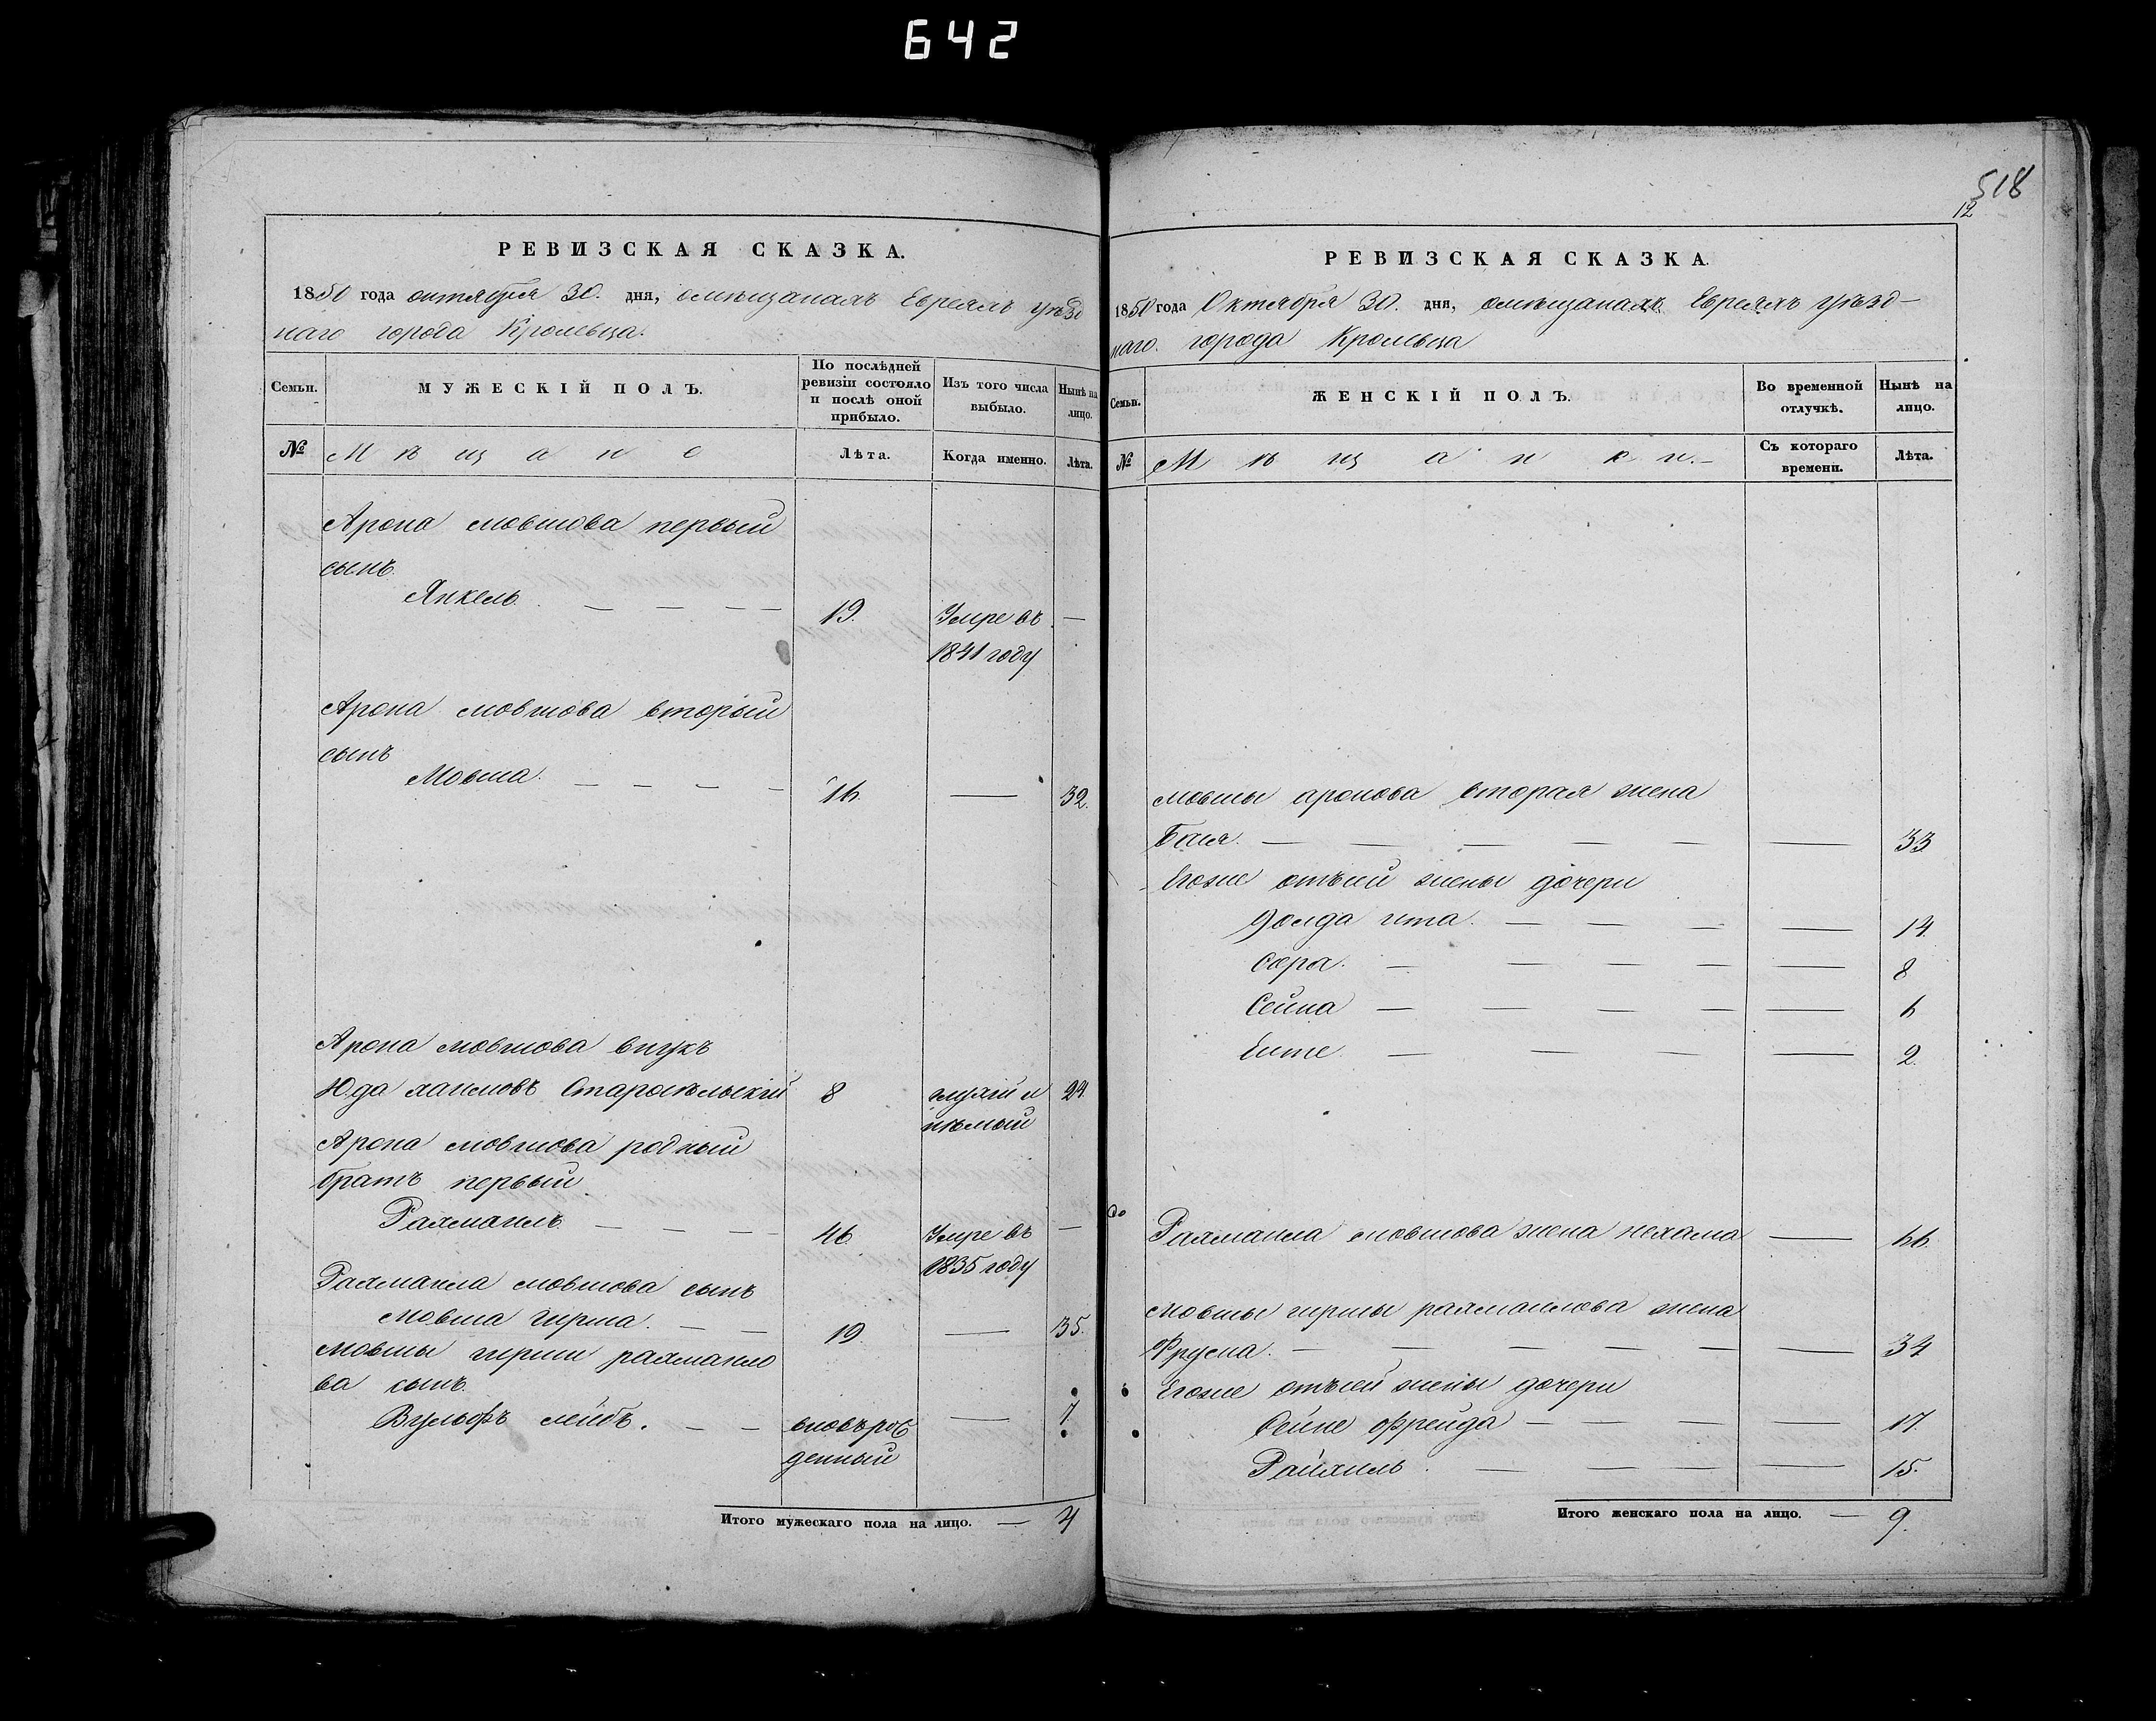 642
РЕВИЗСКАЯ СКАЗКА.
1850 года октября 30. дня, омѣщанахъ Евреяхъ уѣзд
наго города Кролевца.
Семьи.
МУЖЕСКІЙ ПОЛЪ.
По послѣдней ревизіи состояло и послѣ оной прибыло.
Изъ того числа выбыло.
Нынѣ на лицо.
№
Мѣщане
Лѣта.
Когда именно.
Лѣта.
Арона мовшова первый
сынъ
Янкель. 19. Умре въ —
1841 году
Арона мовшова вторый
сынъ
Мовша. — — — — 16. — 32.
Арона мовшова внукъ
Юда хаимовъ Старосѣльскій 8 глухій и 24.
нѣмый
Арона мовшова родный
братъ первый
Рахмаилъ — — — 46. Умре въ —
1835 году
Рахмаила мовшова сынъ
Мовша гирша. — — 19. — 35.
Мовши гирши рахмаило
ва сынъ.
Вульфъ лейбъ. — — вновьрож — 7.
денный
Итого мужескаго пола на лицо. — 4
518
12
РЕВИЗСКАЯ СКАЗКА.
1850 года Октября 30. дня, омѣщанахъ Евреяхъ уѣзд-
наго. города Кролевца
Семьи.
ЖЕНСКІЙ ПОЛЪ.
Во временной отлучкѣ.
Нынѣ на лицо.
№
Мѣщанки.
Съ котораго времени.
Лѣта.
Мовшы аронова вторая жена
Бася. — — — — — — 33
Егоже отъсей жены дочери
ита. — — — — 14.
Сора. — — — — — 8
Сейна — — — — — 6
Енте. — — — — 2.
Рахмаила мовшова жена нехама — 66.
Мовшы гиршы рахмаилова жена
Фрусна. — — — — — — 34
Егоже отъсей жены дочери
фрейда — — — — 17.
Райхиль. — — — — 15.
Итого женскаго пола на лицо. — 9.